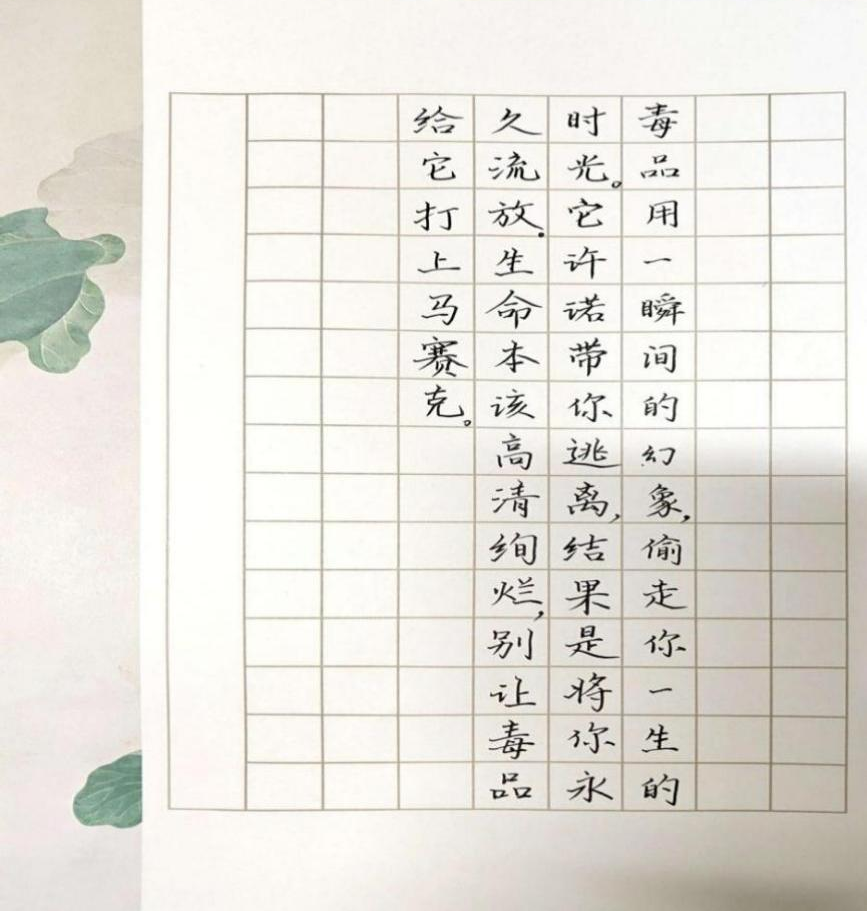 毒品用一瞬间的幻象,偷走你一生的
时光。它许诺带你逃离,结果是将你永
久流放.生命本该高清绚烂,别让毒品
给它打上马赛克。